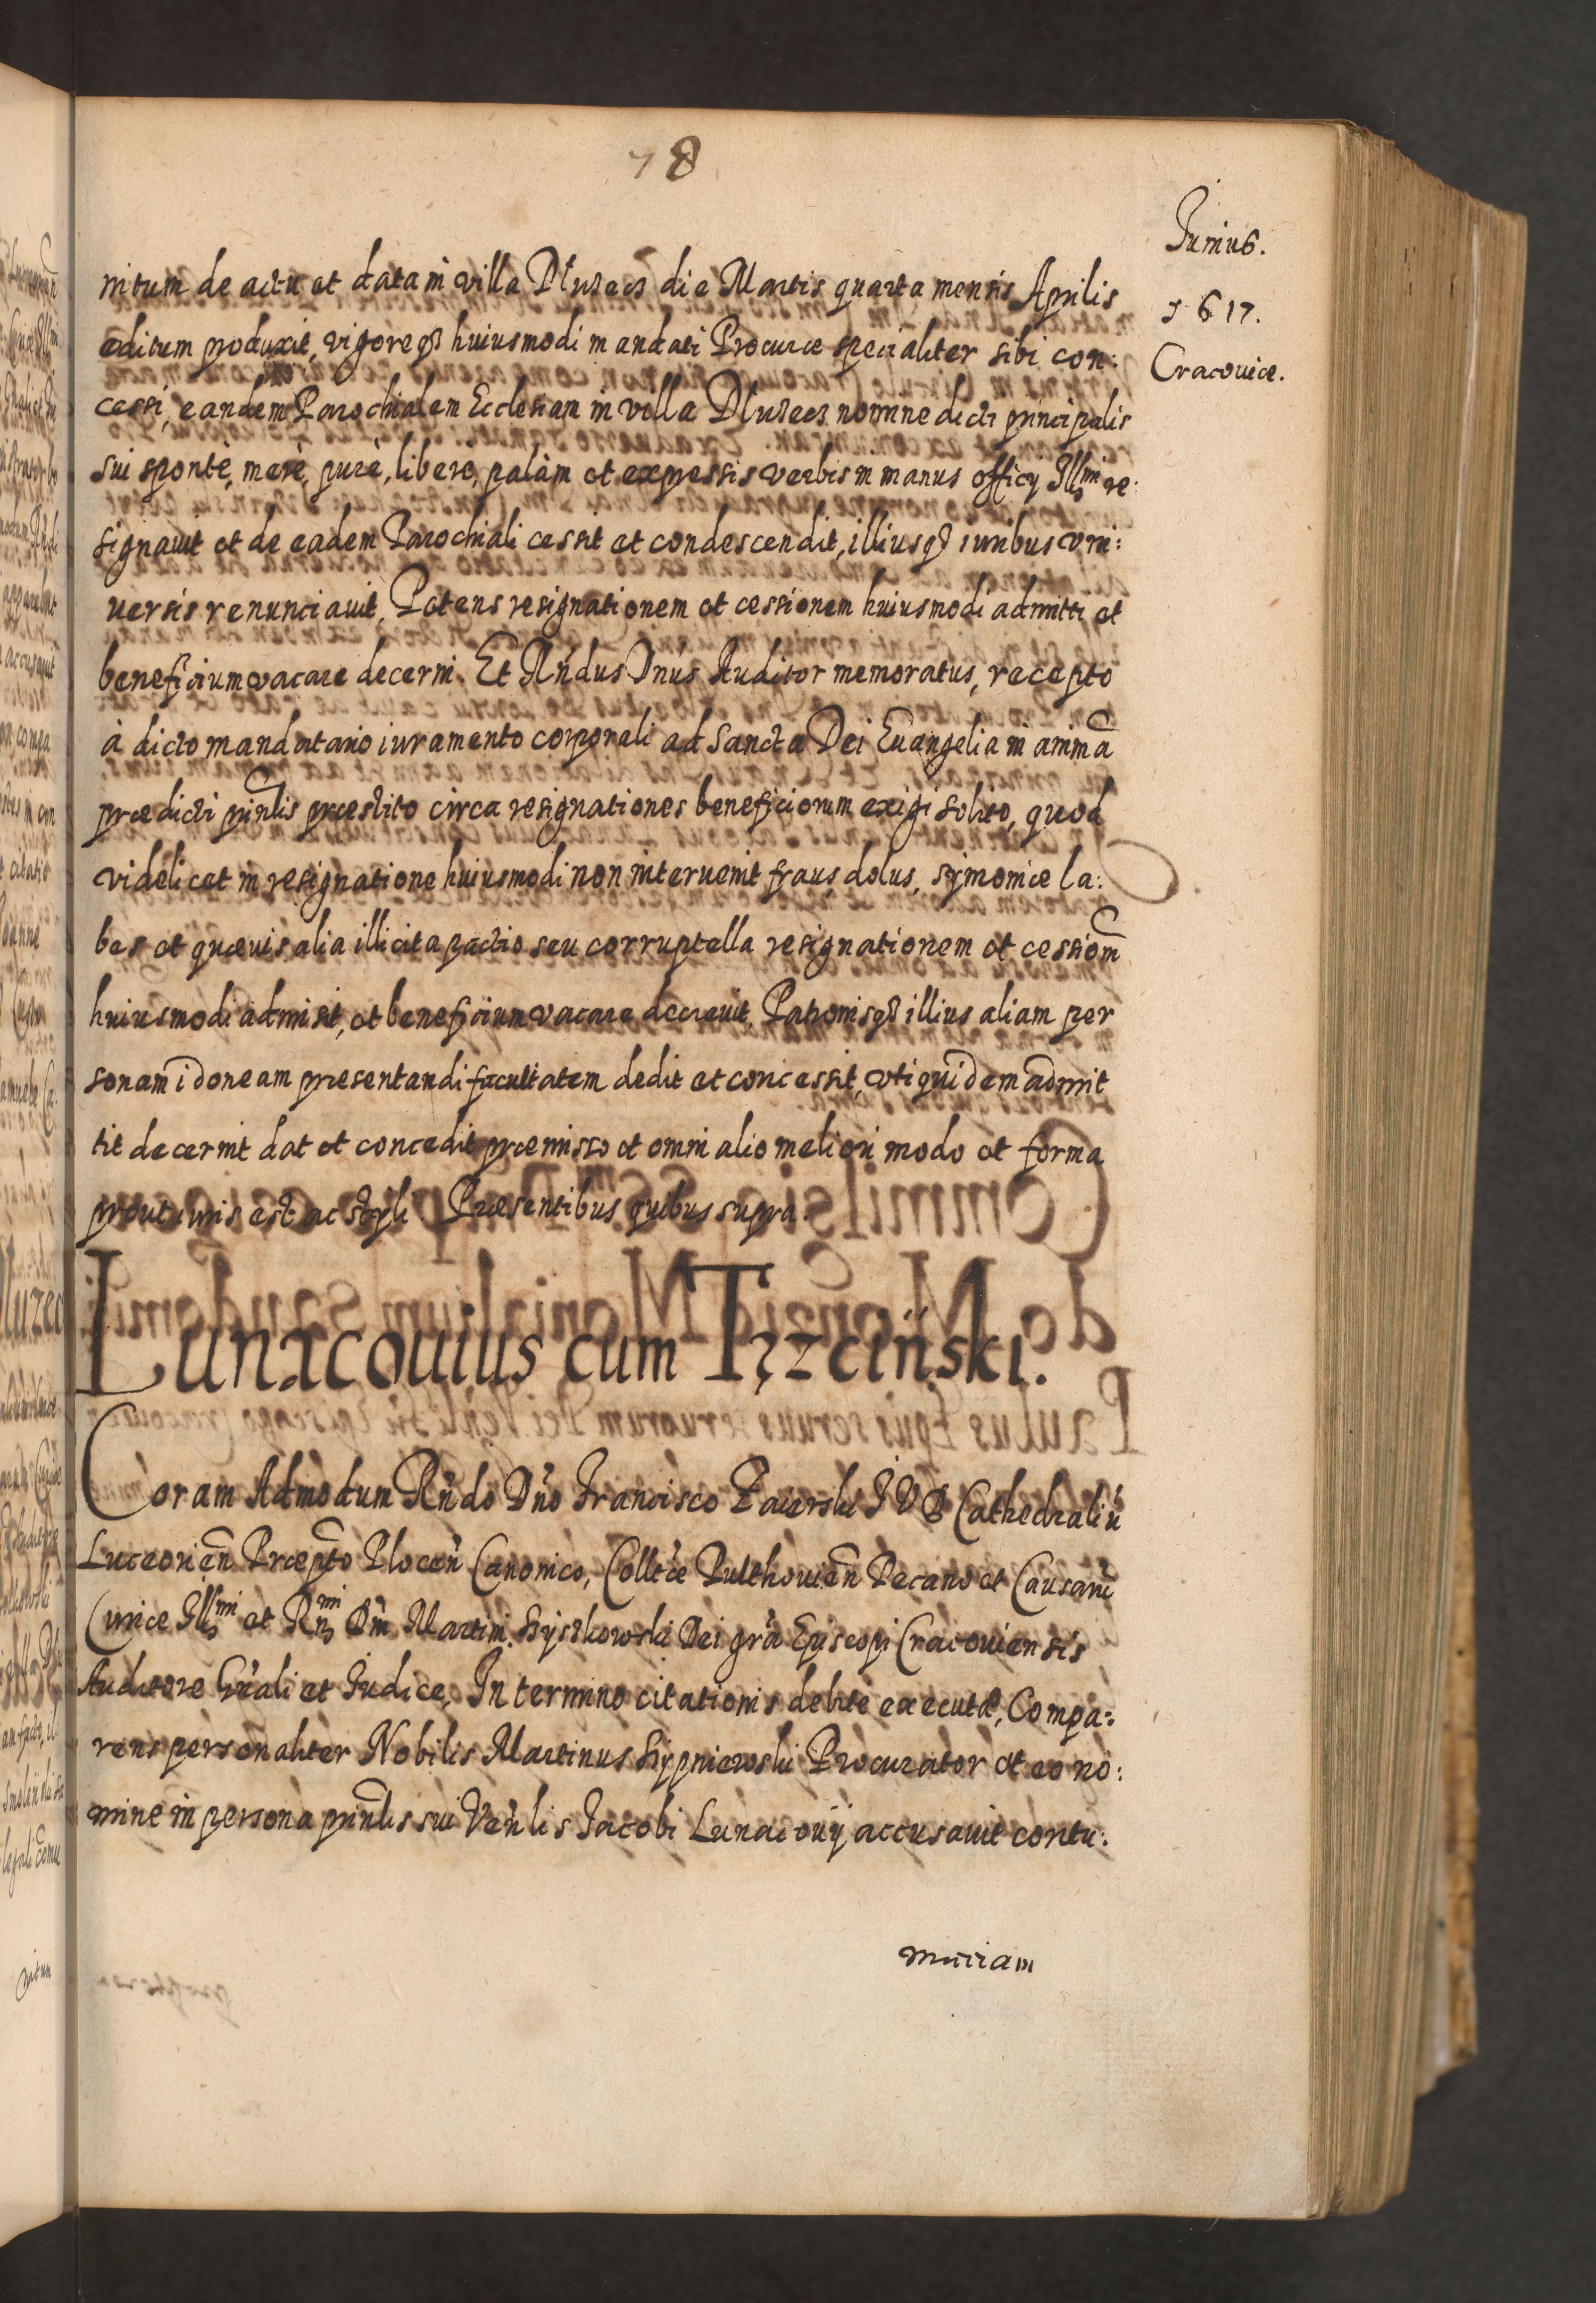 78
Junius.
1617.
Cracouiæ.
nitum de actu et data in villa Dluzecz die Martis quarta mensis Aprilis
editum produxit, vigoreq3 huiusmodi mandati Procuræ specialiter sibi con:
cessi, eandem Parochialem Ecclesiam in villa Dluzecz nomine dicti principalis
sui sponte, merè, purè, liberè, palàm et expressis verbis in manus officy Illmi re:
signauit et de eadem Parochiali cessit et condescendit, illiusq3 iuribus vni:
uersis renunciauit, Petens resignationem et cessionem huiusmodi admitti et
beneficium vacare decerni. Et Rńdus Dńus Auditor memoratus, recepto
à dicto mandatario iuramento corporali ad Sancta Dei Euangelia in animā
prædicti pinlis præstito circa resignationes beneficiorum exigi solito, quod
videlicet in resignatione huiusmodi non interuenit fraus, dolus, symoniæ la:
bes et quæuis alia illicita pactio seu corruptella resignationem et cessiom̃
huiusmodi admisit, et beneficium vacare decreuit, Patronisq3 illius aliam per
sonam idoneam præsentandi facultatem dedit et concessit, vti quidem admit
tit decernit dat et concedit præmisso et omni alio meliori modo et forma
prout iuris est ac styli Præsentibus quibus supra.
Lunacouius cum Trzciński.
Coram Admodum Rńdo Dńo Francisco Zaierski I V D Cathedraliũ
Luceorień Præpto Plocen̄ Canonico, Colltæ Pulthouień Decano et Causarũ
Curiæ Illmi et Rńmi Dńi Martini Szyszkowski Dei grã Episcopi Cracouiensis
Auditore Gńali et Iudice, In termino citationis debite executæ, Compa:
rens personaliter Nobilis Martinus Sypniewski Procurator et eo no:
mine in persona prinlis sui Veńlis Iacobi Lunacouij accusauit contu:
maciam